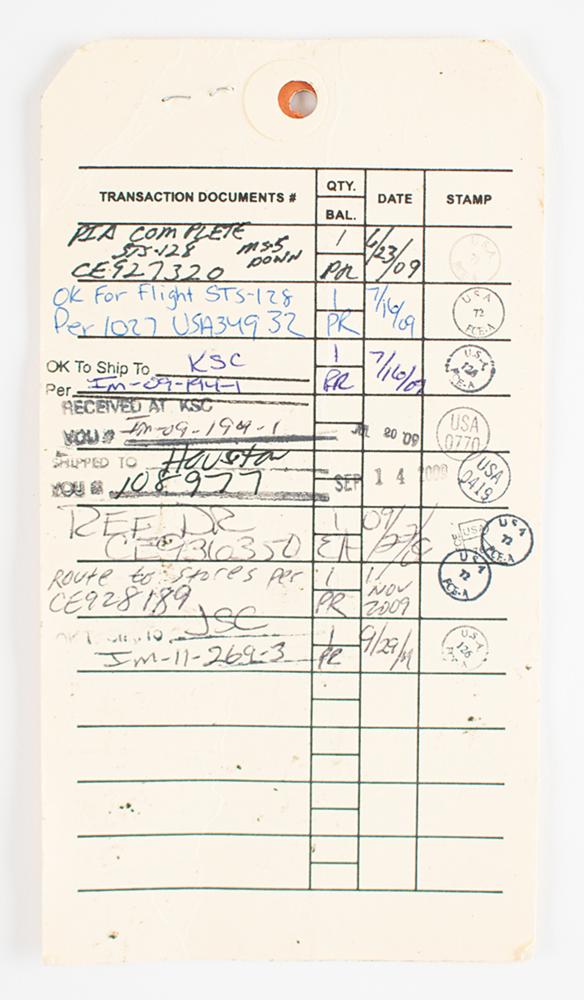 TRANSACTION DOCUMENTS # QTY. BAL. DATE STAMP
PIA COMPLETE 1 6/23/09
STS-128 MS-5 DOWN
CE927320 PR
OK For Flight STS-128 1 7/16/09 USA 72 FCE-A
Per 1027 USA34932 PR
OK To Ship To KSC 1 7/16/09 U.S.A
Per Im-09-194-1 PR
RECEIVED AT KSC USA 0770
VOU # Im-09-194-1 JUL 20 '09
SHIPPED TO Houston SEP 14 2009 USA 0419
VOU # 108977
REF DR 1 USA 72 FCE-A
CE936350
Route to stores per 1 11 NOV 2009 USA 72 FCE-A
CE928189 PR
JSC 1 9/29/11 U.S.A 126
Im-11-269-3 PR